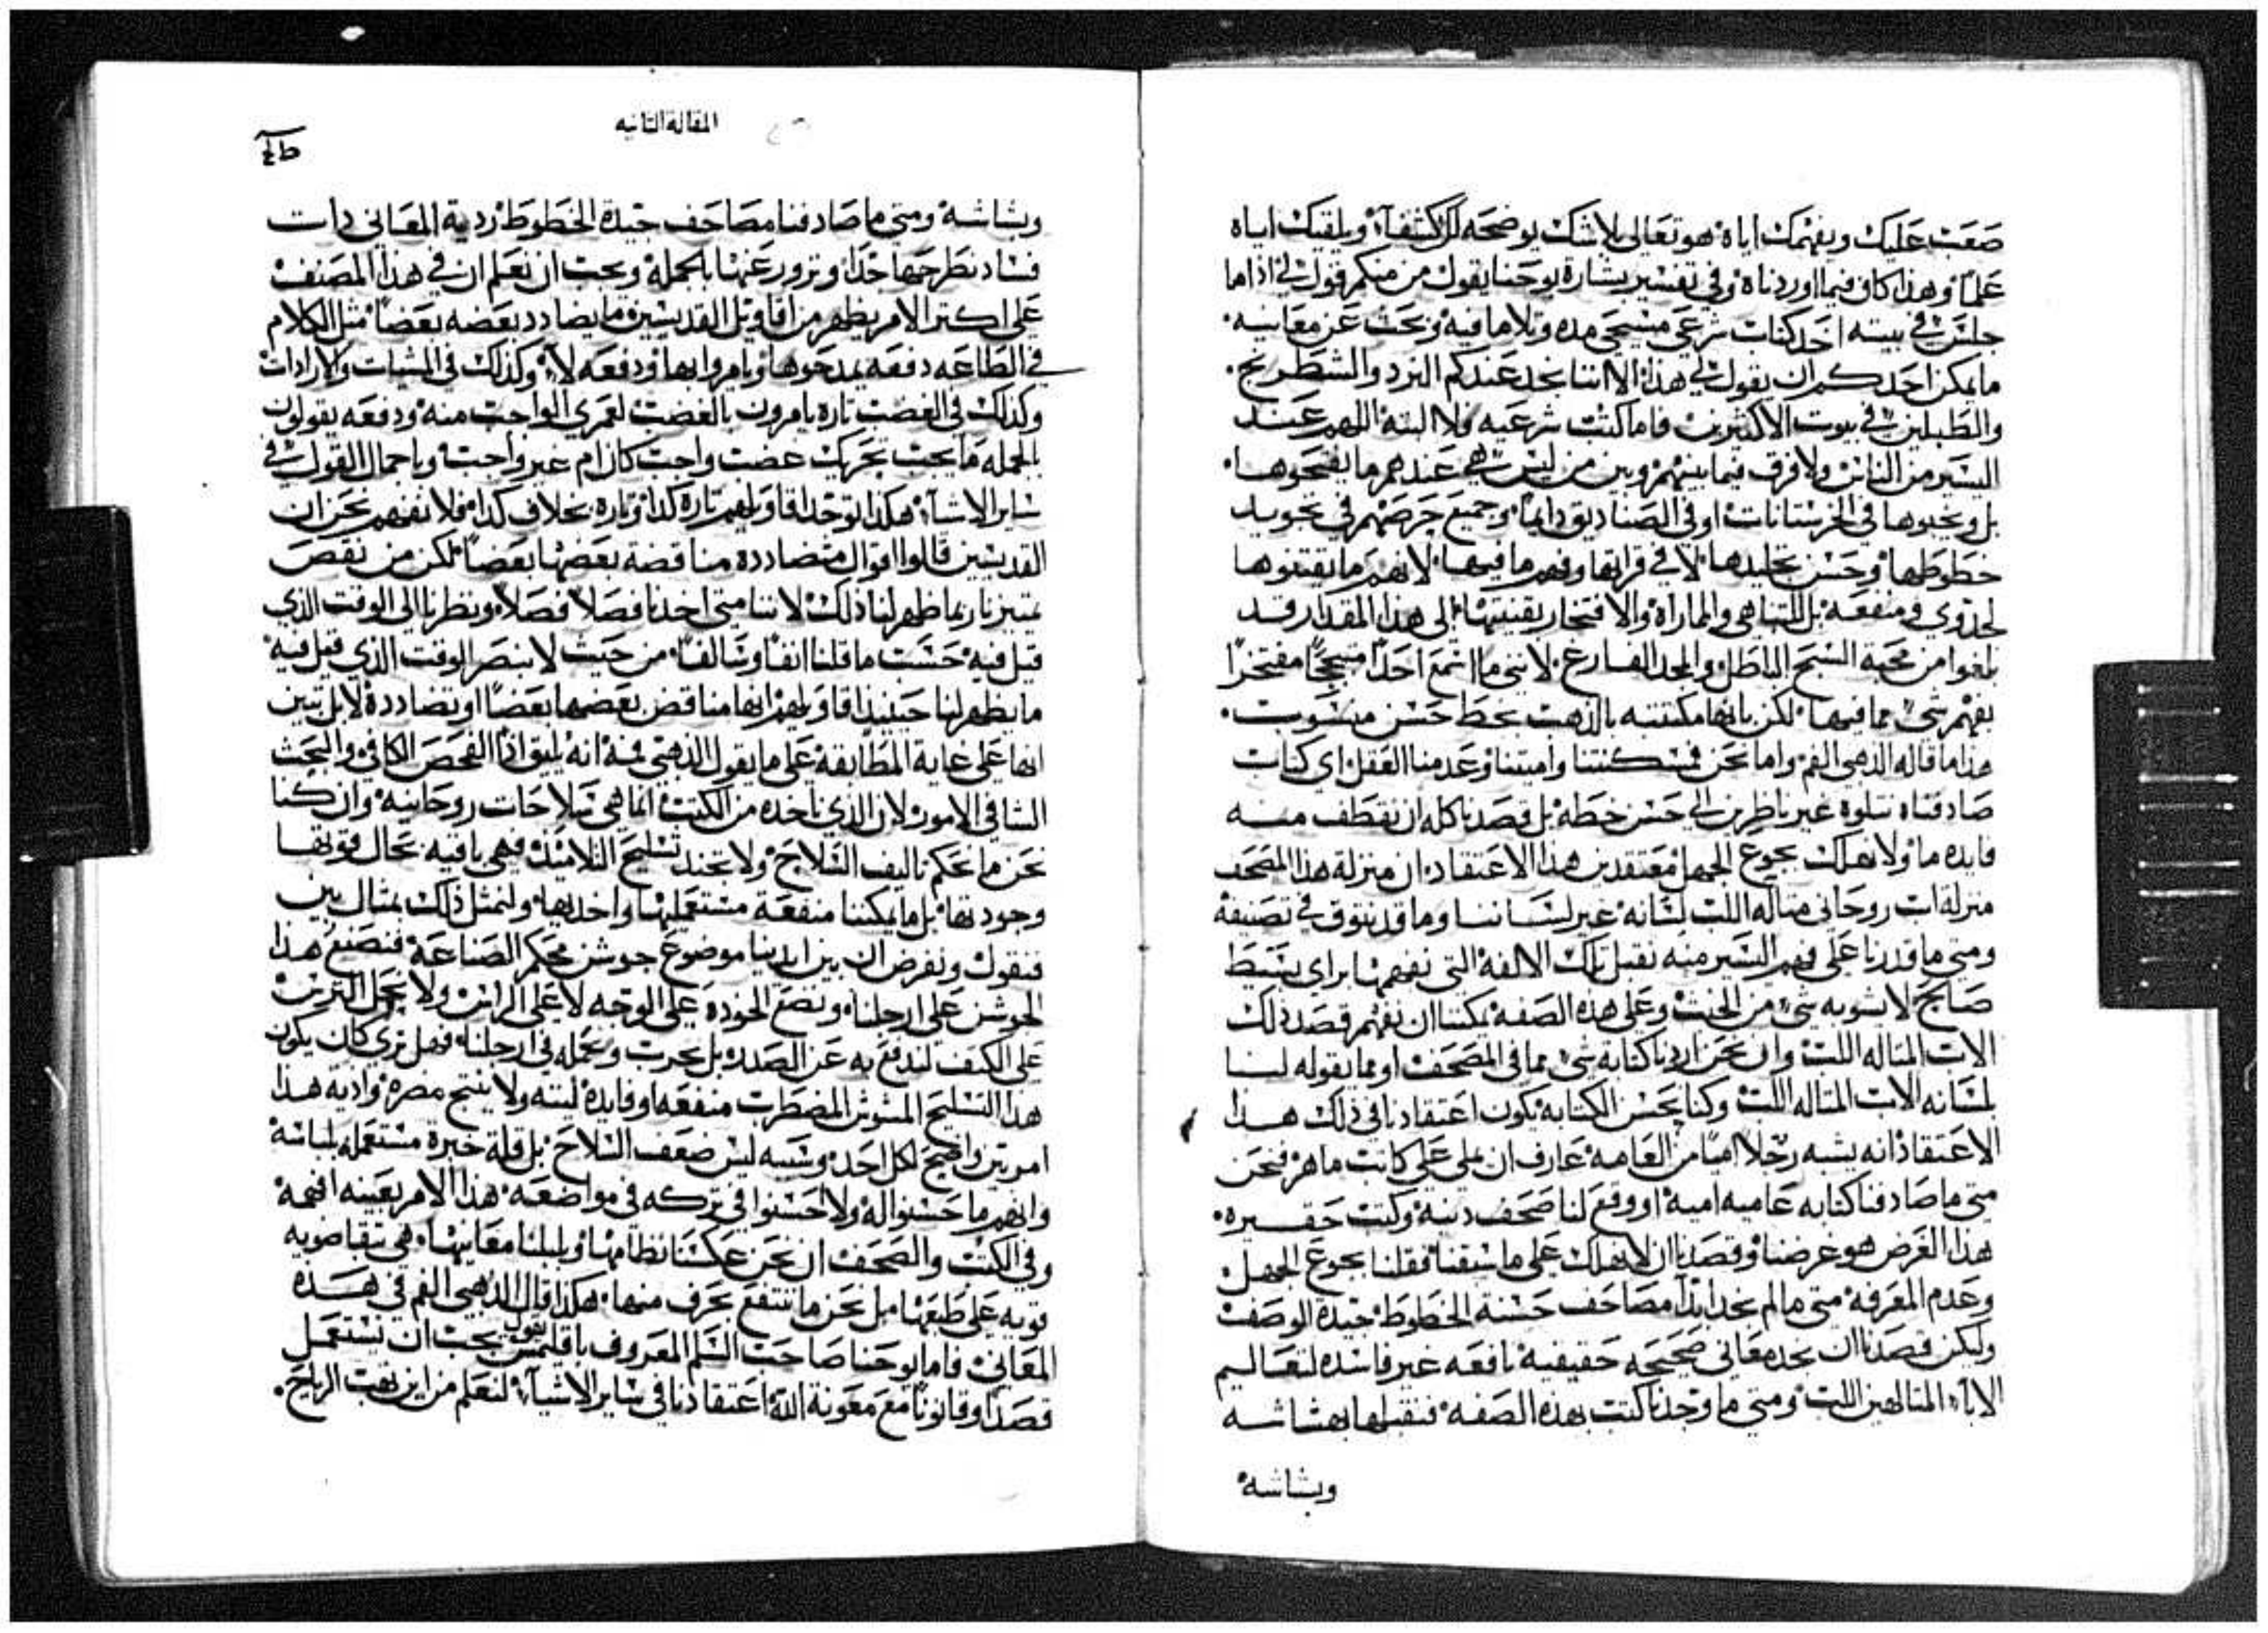 صعب عليك ويفهمك اياه هو تعالى بلا شك يوضحه لك كشفآء ويلقيك اياه
علماً وهذا كاف فيما اوردناه وفي تفسير بشارة يوحنا يقول من منكم قول لي اذا ما
جلس في بيته اخذ كتاب شرعي مسيحي مده وتلا ما فيه وبحث عن معانيه
ما يمكن احدكم ان يقول لي هذا الا اننا نجد عندكم النرد والشطرنج
والطبلين في بيوت الاكثرين فاما كتب شرعيه فلا البته اللهم عند
اليسير من الناس ولا فرق فيما بينهم وبين من ليس هي عندهم ما يفتحوها
بل ويخبوها في الخرستانات او في الصناديق دايماً وجميع حرصهم في تجويد
خطوطها وحسن تجليدها لا في قرايتها وفهم ما فيها لانهم ما يقتنوها
لجدوى ومنفعه بل للتباهي والمماراه والافتخار بقنيتها الى هذا المقدار قد
بلغوا من محبة السبح الباطل والمجد الفارغ لانني ما اسمع احداً متبجحاً مفتخراً
بفهم شي مما فيها لكن بانها مكتتبه بالذهب بخط حسن منسوب
هذا ما قاله الذهبي الفم واما نحن فمسكنتنا واميتنا وعدمنا العقل اي كتاب
صادفناه نتلوه غير ناظرين الى حسن خطه بل قصدنا كله ان نقطف منه
فايده ما ولا نهلك بجوع الجهل معتقدين هذا الاعتقاد ان منزلة هذا المصحف
منزلة اب روحاني متاله اللب لسانه غير لساننا وما قد نتوق في تصنيفه
ومتى ما قدرنا على فهم اليسير منه نقبل تلك الالفه التي نفهمها براي بسيط
صالح لا يشوبه شي من الخبث وعلى هذه الصفه يمكننا ان نفهم قصد ذلك
الاب المتاله اللب وان نحن اردنا كتابة شي مما في المصحف او مما يقوله لنا
بلسانه الاب المتاله اللب وكنا نحسن الكتابه يكون اعتقادنا في ذلك هذا
الاعتقاد انه يشبه رجلاً امياً من العامه عارف ان يملي على كاتب ماهر فنحن
متى ما صادفنا كتابه عاميه اميه او وقع لنا صحف دنيه وكتب حقيره
هذا الغرض هو غرضنا وقصدنا ان لا نهلك على ما سبقنا فقلنا بجوع الجهل
وعدم المعرفه متى ما لم نجد ابداً مصاحف حسنة الخطوط جيدة الوصف
ولكن قصدنا ان نجد معاني صحيحه حقيقيه نافعه غير فاسده لتعاليم
الابآء المتالهين اللب ومتى ما وجدنا كتب بهذه الصفه فنقبلها بهشاشه
وبشاشه
المقالة الثانيه
وبشاشه ومتى ما صادفنا مصاحف جيدة الخطوط ردية المعاني ذات
فساد نطرحها جداً ونزور عنها بالجمله ويجب ان نعلم ان في هذا المصنف
على اكثر الامر يظهر من اقاويل القديسين ما يضادد بعضه بعضاً مثل الكلام
في الطاعه دفعه يمدحوها ويامروا بها ودفعه لا وكذلك في المشيات والارادات
وكذلك في الغضب تاره يامرون بالغضب لعمري الواجب منه ودفعه يقولون
بالجمله ما يجب تحريك غضب واجب كان ام غير واجب وباجمال القول في
ساير الاشيآء هكذا توجد اقاويلهم تاره كذا وتاره بخلاف كذا فلا نفهم نحن ان
القديسين قالوا اقوال متضادده مناقضة بعضها بعضاً لكن من نقص
تمييزنا ربما ظهر لنا ذلك لاننا متى اخذنا فصلاً فصلاً ونظرنا الى الوقت الذي
قيل فيه حسب ما قلنا انفاً وسالفاً من حيث لا ننصر الوقت الذي قيل فيه
ما يظهر لنا حينيذ اقاويلهم انها مناقض بعضها بعضاً او تضادده لا بل تبين
انها على غاية المطابقه على ما يقول الذهبي فمه انه يليق اذاً الفحص الكافي والبحث
الشافي الامور لان الذي ناخذه من الكتب انما هي سلاحات روحانيه وان كنا
نحن ما نحكم تاليف السلاح ولا نجند تسليح التلاميذ فهي باقيه بحال قوتها
وجودتها بل ما يمكننا منفعة مستعمليها واخذيها ولنمثل ذلك بمثال بين
فنقول ونفرض ان بين ايدينا موضوع جوشن محكم الصناعه فنصنع هذا
الجوشن على ارجلنا ونضع الخوده على الوجه لا على الراس ولا نجعل الترس
على الكتف لندفع به عن الصدد بل نحرب ونحمله في ارجلنا فهل ترى كان يكون
هذا التسليح المشوش المضطرب منفعه او فايده لبته ولا ينتج مضره واديه هذا
امر بين واضح لكل احد وسببه ليس ضعف السلاح بل قلة خبرة مستعمله بلباسه
وانهم ما حسنوا له ولا احسنوا في تركه في مواضعه هذا الامر بعينه افهمه
وفي الكتب والصحف ان نحن عكسنا نظامها وبلبلنا معانيها هي تبقا ضويه
قويه على طبعها بل نحن ما ننتفع بحرف منها هكذا قال الذهبي الفم في هذه
المعاني فاما يوحنا صاحب السلم المعروف باقليمس يقول يجب ان نستعمل
قصداً وقانوناً مع معونة الله اعتقادنا في ساير الاشيآء لنعلم من اين تهب الرياح